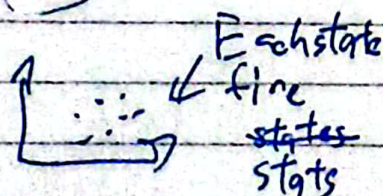 Each state
fine
states
stats